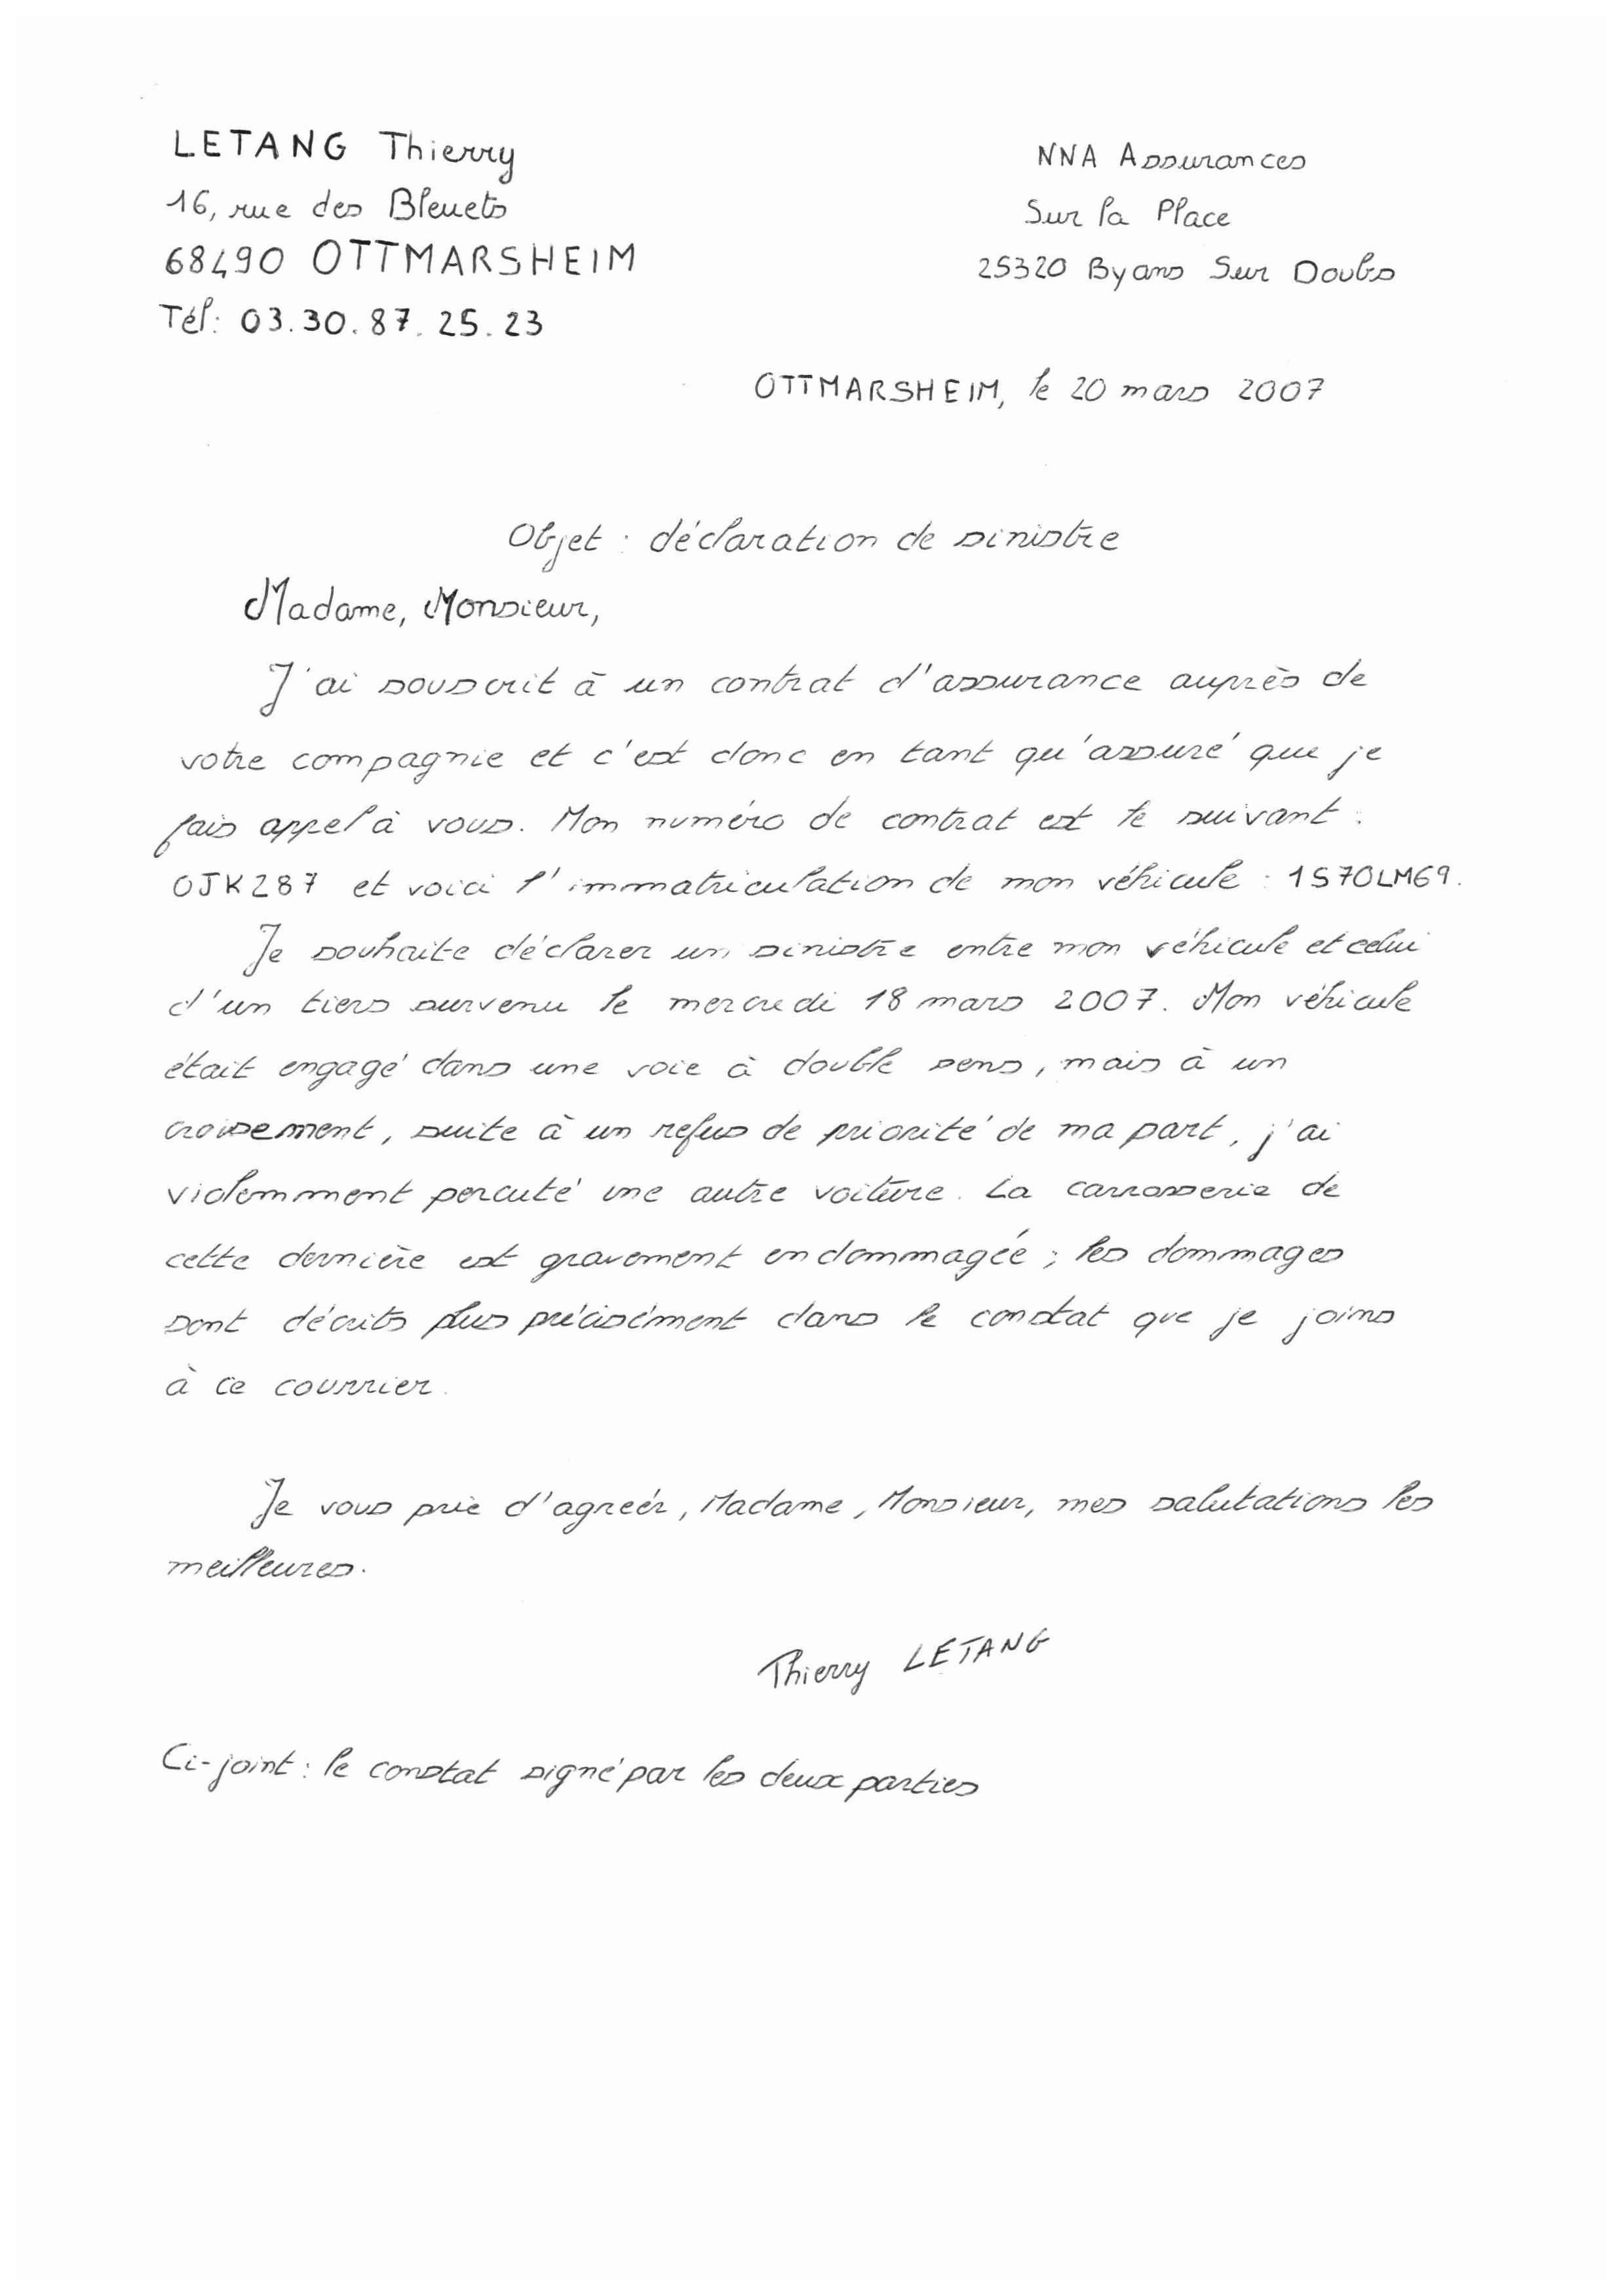 LETANG Thierry
16, rue des Bleuets
68490 OTTMARSHEIM
Tél: 03.30.87.25.23
NNA Assurances
Sur la Place
25320 Byans Sur Doubs
OTTMARSHEIM, le 20 mars 2007
Objet : déclaration de sinistre
Madame, Monsieur,
J'ai souscrit à un contrat d'assurance auprès de
votre compagnie et c'est donc en tant qu'assuré que je
fais appel à vous. Mon numéro de contrat est le suivant :
OJK287 et voici l'immatriculation de mon véhicule : 1S70LM69.
Je souhaite déclarer un sinistre entre mon véhicule et celui
d'un tiers survenu le mercredi 18 mars 2007. Mon véhicule
était engagé dans une voie à double sens, mais à un
croisement, suite à un refus de priorité de ma part, j'ai
violemment percuté une autre voiture. La carrosserie de
cette dernière est gravement endommagée ; les dommages
sont décrits plus précisément dans le constat que je joins
à ce courrier.
Je vous prie d'agréer, Madame, Monsieur, mes salutations les
meilleures.
Thierry LETANG
Ci-joint : le constat signé par les deux parties